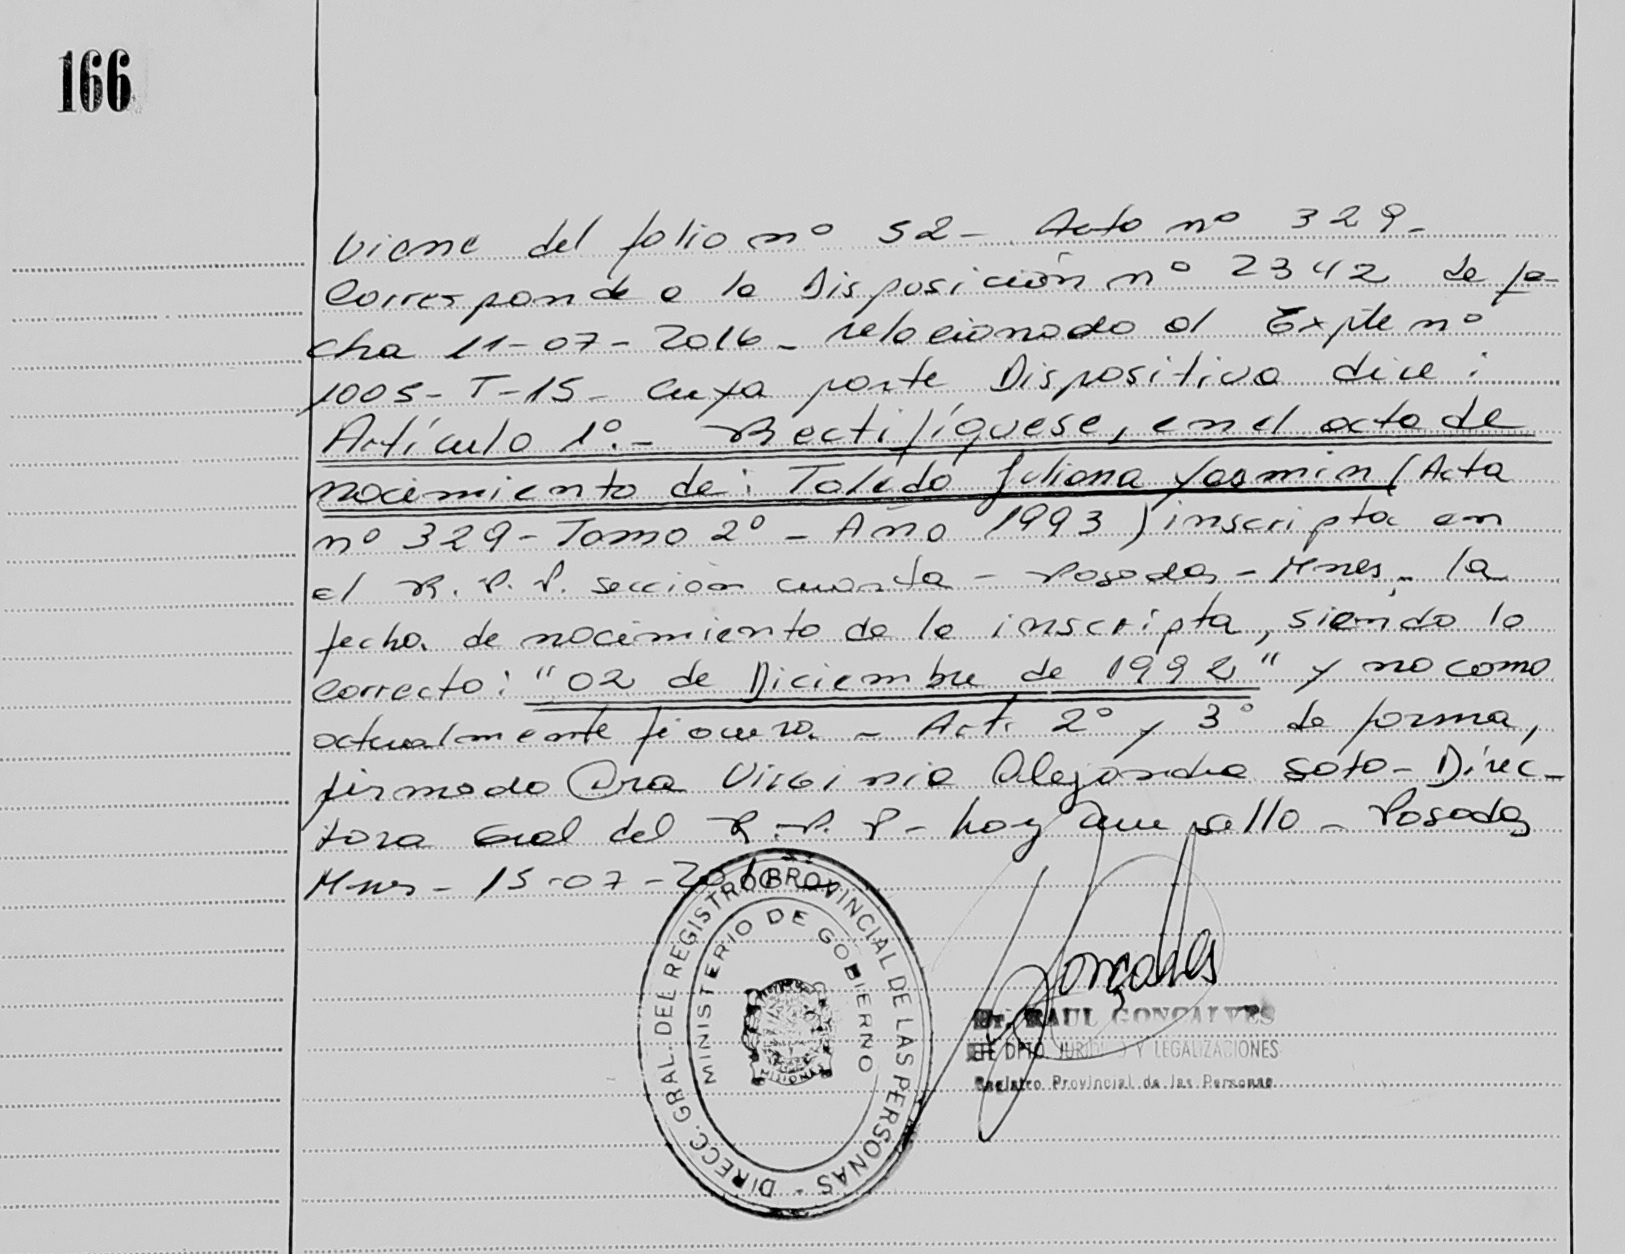 166
Viene del folio nº 52 - Acta nº 329.-
Corresponde a la Disposición nº 2342 de fe-
cha 11-07-2016 - relacionado al Expte nº
1005-T-15 - cuya parte Dispositiva dice:
Artículo 1º.- Rectifíquese, en el acta de
nacimiento de: Toledo Juliana Yasmin (Acta
nº 329 - Tomo 2º - Año 1993) inscripta en
el R.P.P. sección cuarta - Posadas - Mnes, la
fecha de nacimiento de la inscripta, siendo lo
correcto: "02 de Diciembre de 1992" y no como
actualmente figura - Art. 2º y 3º de forma,
firmado Dra Virginia Alejandra Soto - Direc-
tora Gral del R.P.P - hoy sello - Posadas
Mnes - 15-07-2016
DIRECC. GRAL. DEL REGISTRO PROVINCIAL DE LAS PERSONAS -
MINISTERIO DE GOBIERNO
MISIONES
Gonçalves
Dr. RAUL GONÇALVES
JEFE DPTO. JURIDICO Y LEGALIZACIONES
Registro Provincial de las Personas